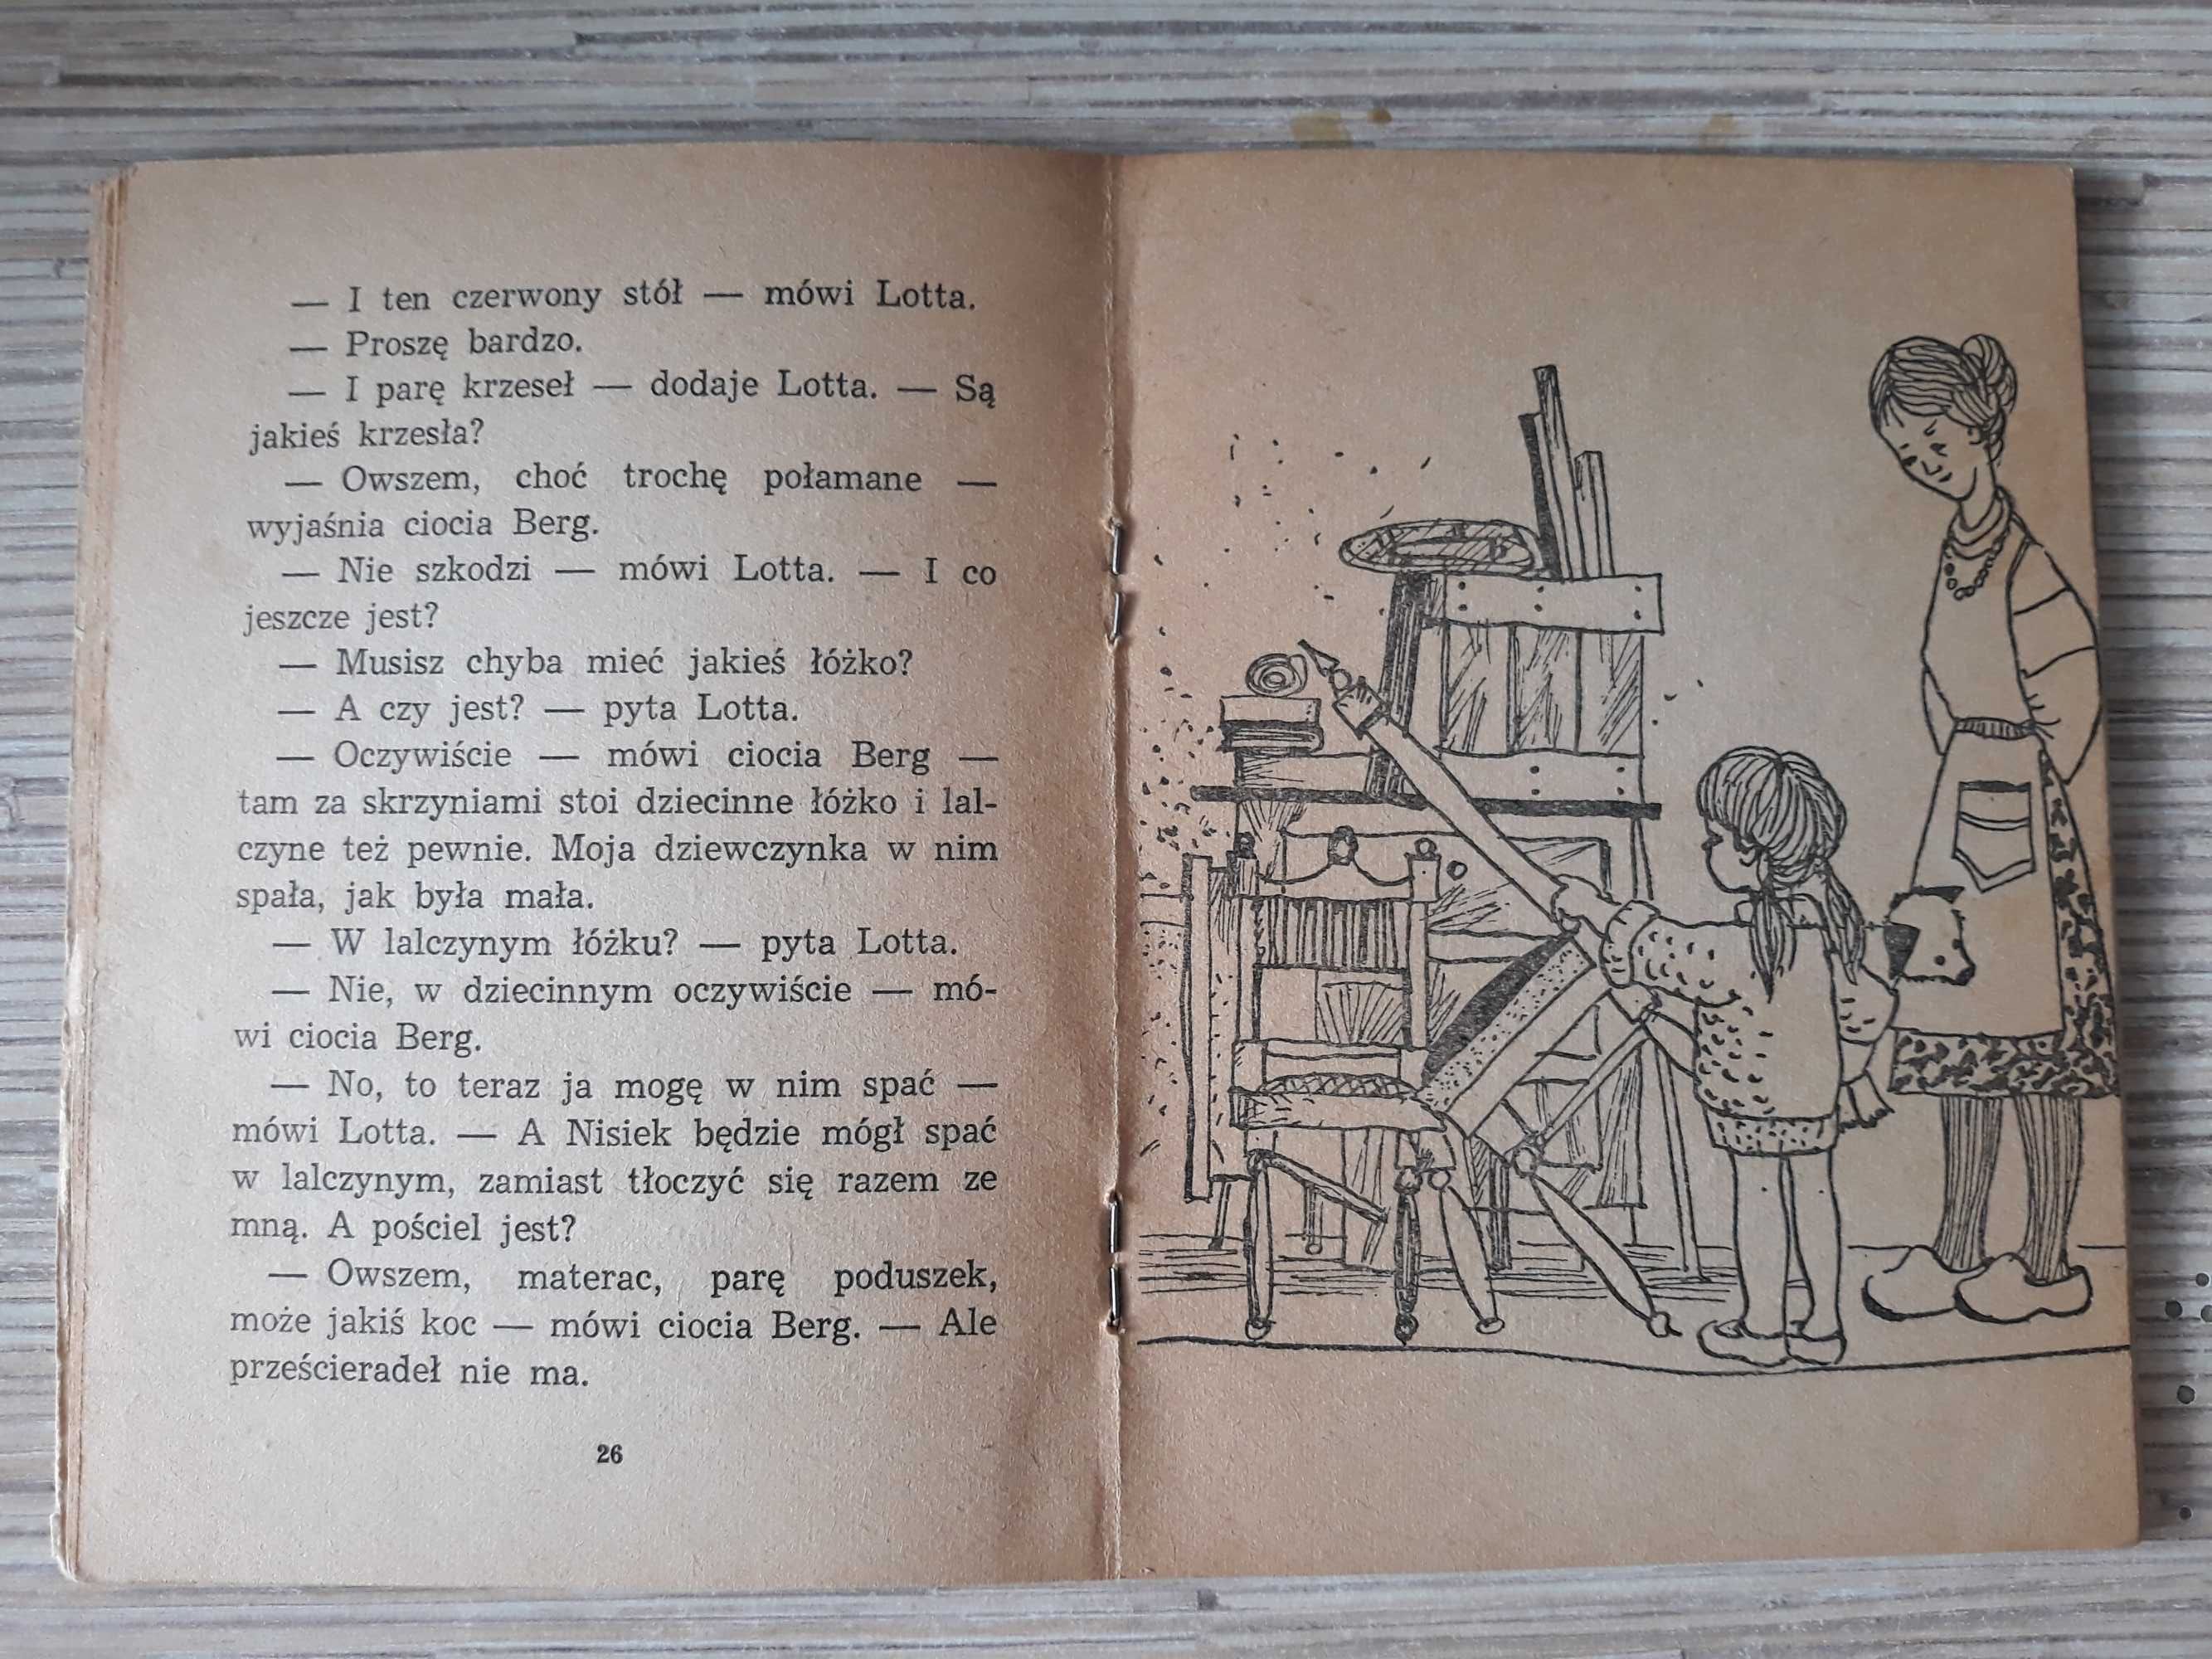 — I ten czerwony stół — mówi Lotta.
— Proszę bardzo.
— I parę krzeseł — dodaje Lotta. — Są
jakieś krzesła?
— Owszem, choć trochę połamane —
wyjaśnia ciocia Berg.
— Nie szkodzi — mówi Lotta. — I co
jeszcze jest?
— Musisz chyba mieć jakieś łóżko?
— A czy jest? — pyta Lotta.
— Oczywiście — mówi ciocia Berg —
tam za skrzyniami stoi dziecinne łóżko i lal-
czyne też pewnie. Moja dziewczynka w nim
spała, jak była mała.
— W lalczynym łóżku? — pyta Lotta.
— Nie, w dziecinnym oczywiście — mó-
wi ciocia Berg.
— No, to teraz ja mogę w nim spać —
mówi Lotta. — A Nisiek będzie mógł spać
w lalczynym, zamiast tłoczyć się razem ze
mną. A pościel jest?
— Owszem, materac, parę poduszek,
może jakiś koc — mówi ciocia Berg. — Ale
prześcieradeł nie ma.
26